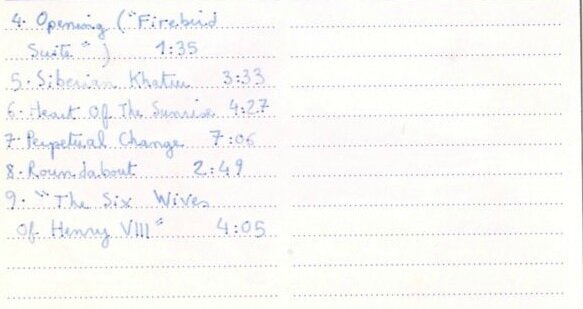 4. Opening ("Firebird
Suite") 1:35
5. Siberian Khatru 3:33
6. Heart Of The Sunrise 4:27
7. Perpetual Change 7:06
8. Roundabout 2:49
9. "The Six Wives
Of Henry VIII" 4:05